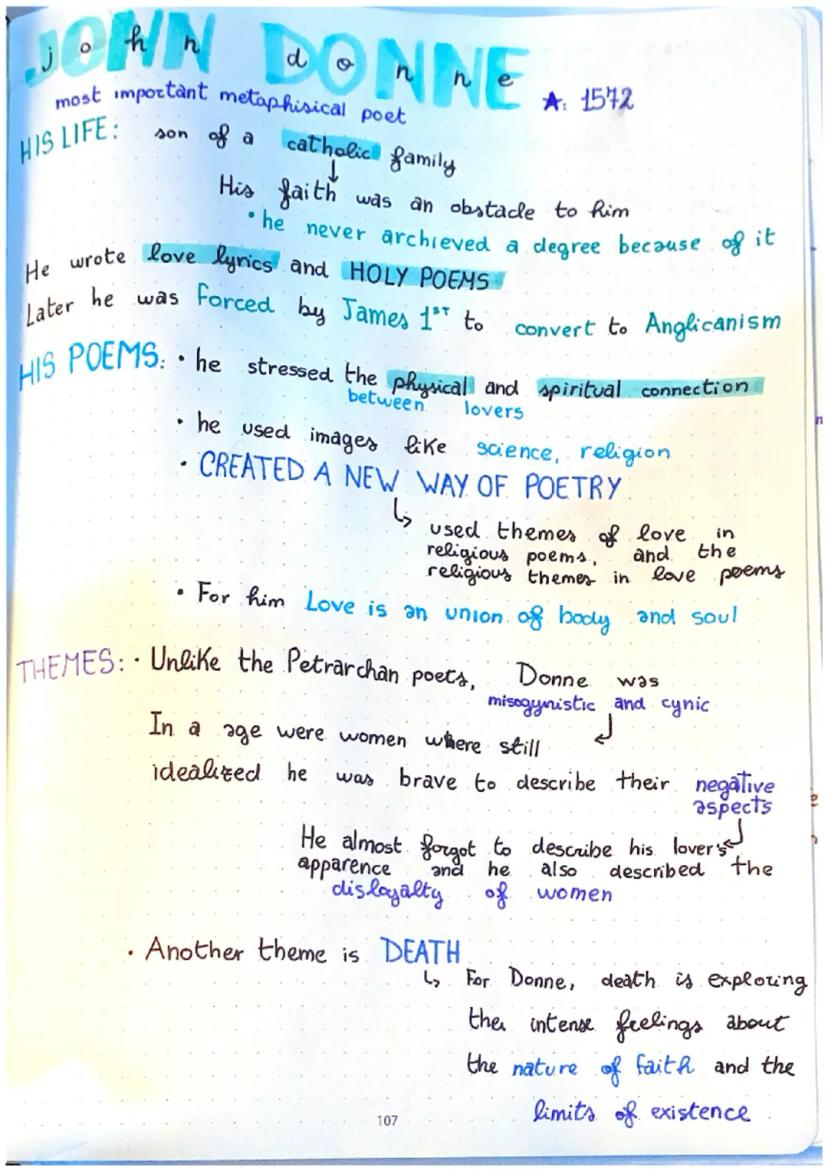 JOHN DONNE
john donne
most important metaphisical poet
★: 1572
HIS LIFE: son of a catholic family
↓
His faith was an obstacle to him
• he never archieved a degree because of it
He wrote love lyrics and HOLY POEMS
Later he was forced by James 1ST to convert to Anglicanism
HIS POEMS: • he stressed the physical and spiritual connection
between lovers
• he used images like science, religion
• CREATED A NEW WAY OF POETRY
↳ used themes of love in
religious poems, and the
religious themes in love poems
• For him Love is an union of body and soul
THEMES: • Unlike the Petrarchan poets, Donne was
misogynistic and cynic
In a age were women where still
idealized he was brave to describe their negative
aspects
He almost forgot to describe his lover's
apparence and he also described the
disloyalty of women
• Another theme is DEATH
↳ For Donne, death is exploring
the intense feelings about
the nature of faith and the
limits of existence
107